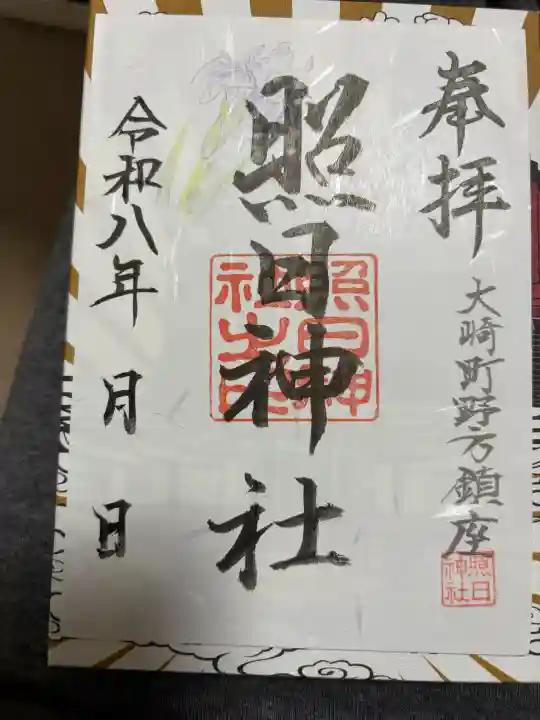 奉拝
大崎町野方鎮座
照日神社
照日神社
照日神社
令和八年 月 日